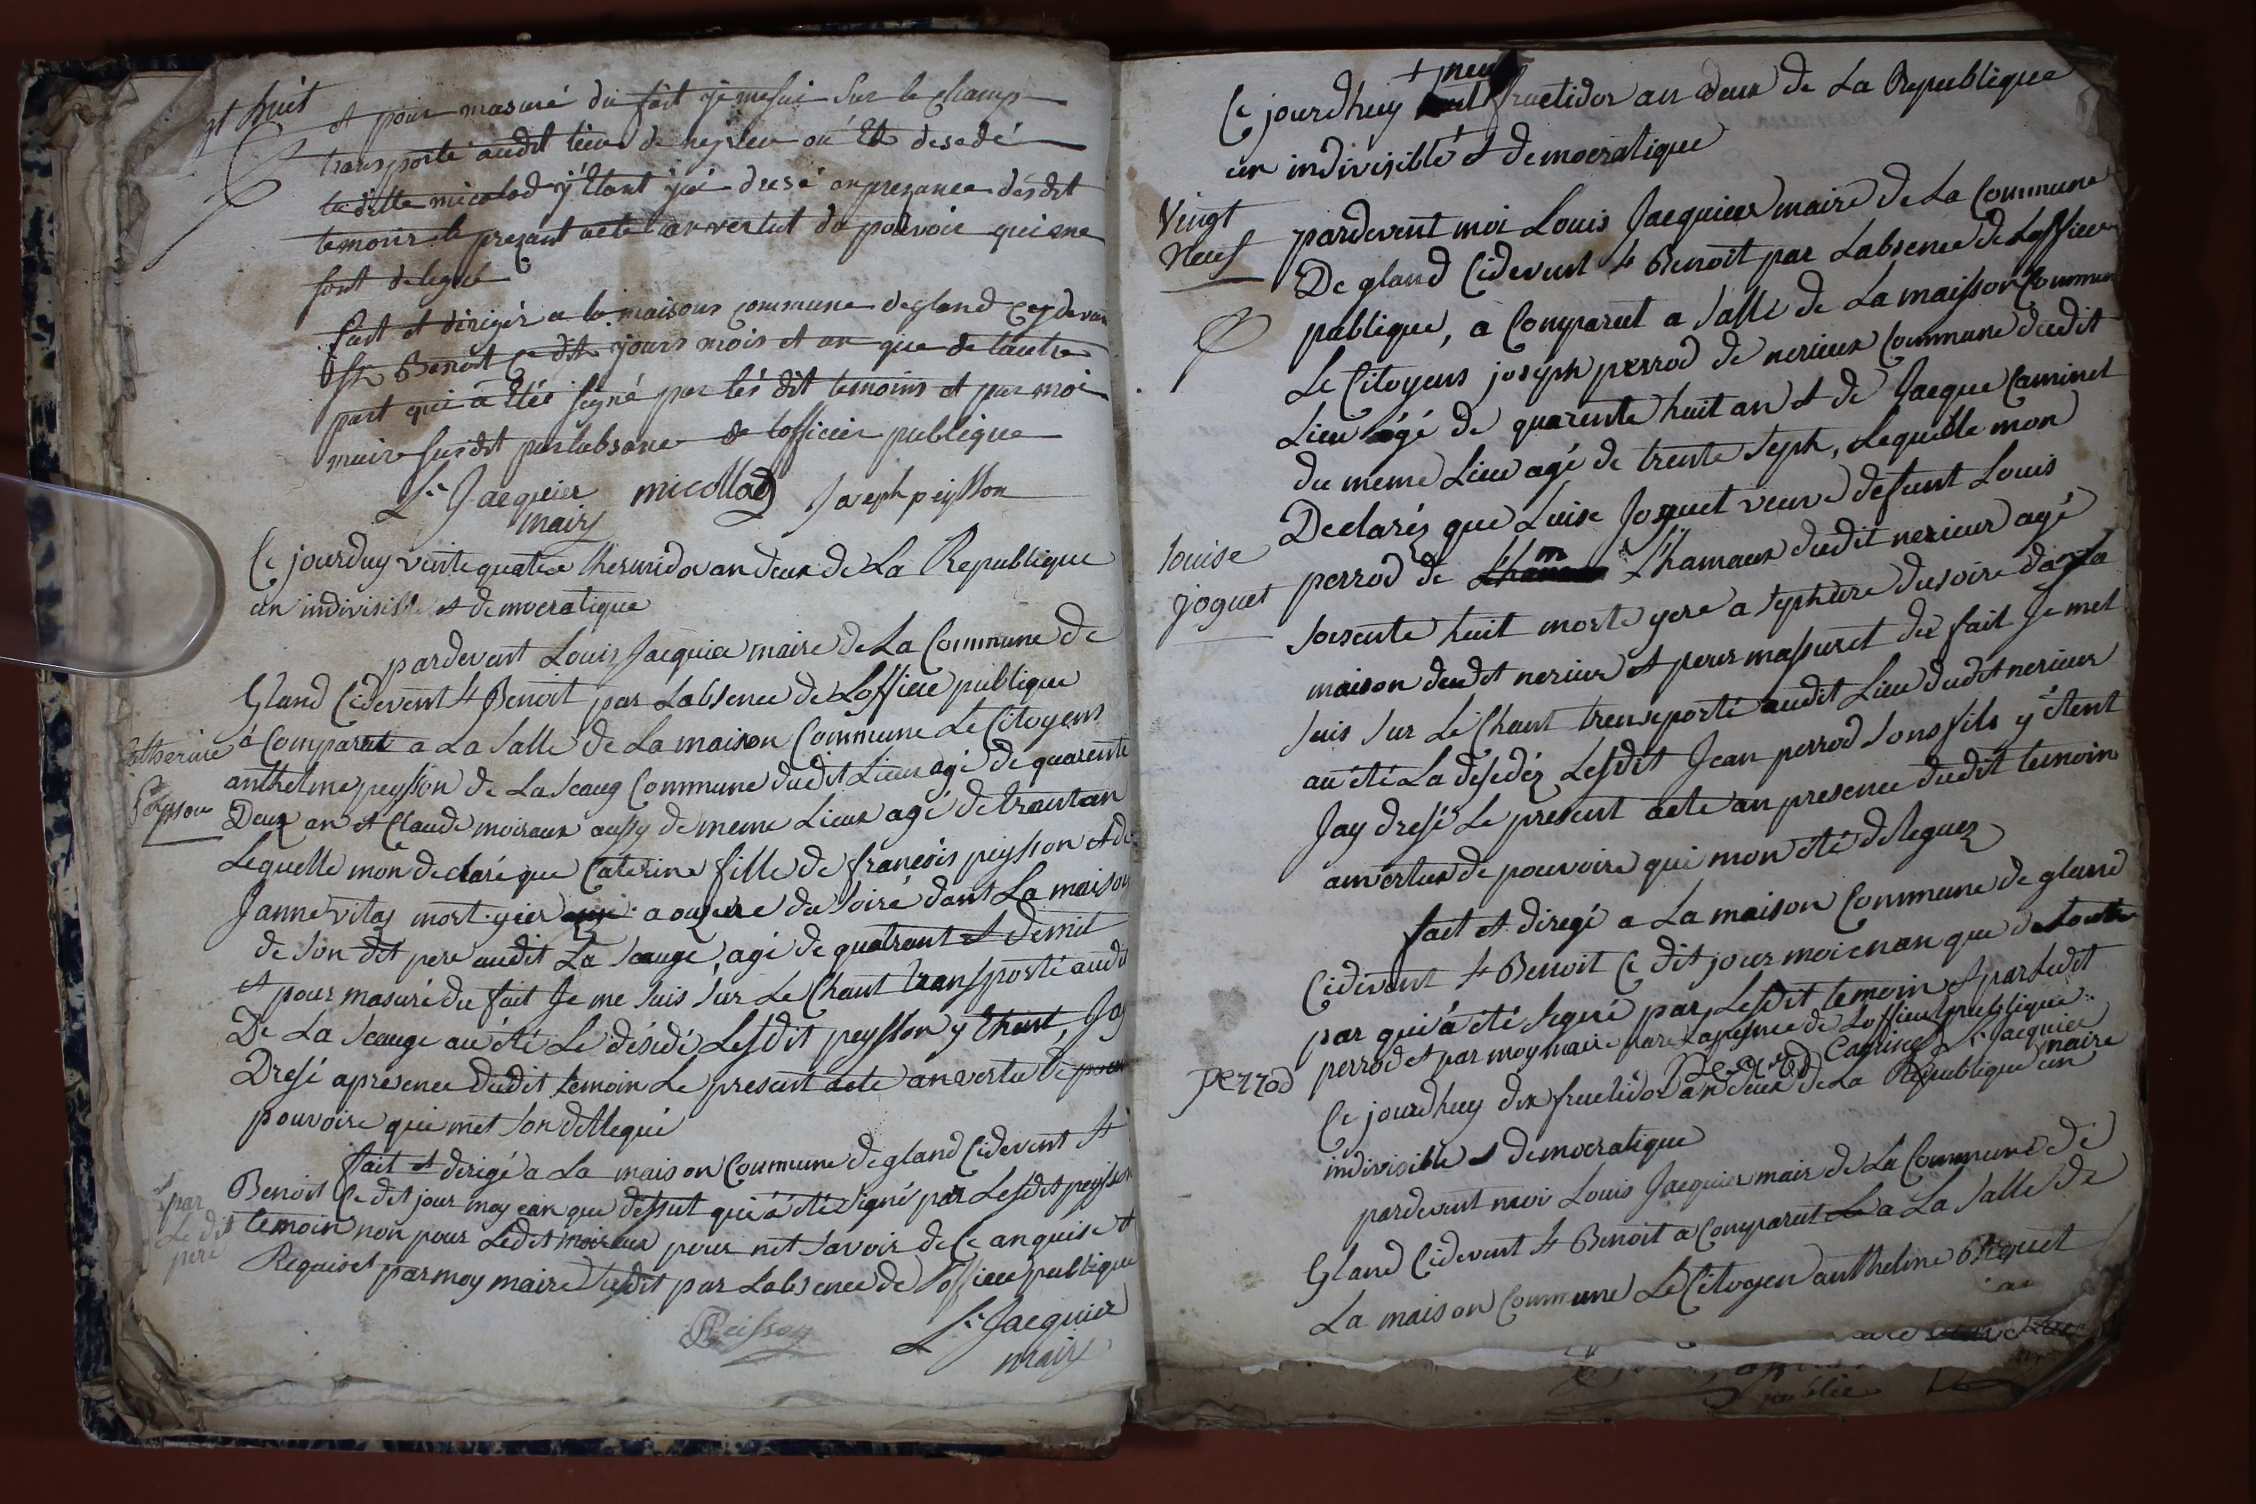 gt huit
et pour masuré du fait je me sui sur le champ
transporté audit lieu de neyrieu ou Et desedé
la ditte micolod y Etant j'ai dresé an prezance desdit
temoins le prezant acte an vertut du pouvoir qui me
sont delegué
fait et dirigér a la maisons commune de gland cy devan
st Benoit ce dit jours mois et an que de lautre
part qui a Etée signé par lés dit temoins et par moi
maire susdit par labsance de lofficier publique
Ls Jacquier micollod Joseph peysson
maire
Ce jourduy vinte quatre thermidor an deux de La Republique
un indivisible et democratique
pardevent Louis Jacquier maire de La Commune de
Gland Cidevent st Benoit par Labsence de Loffice publique
Catherine
Peysson
a Comparut a La Salle de La maison Commune Le Citoyens
anthelme peysson de La Seaug Commune dudit Lieux agé de quarente
Deux an et Claude moiraux aussy de meme Lieux agé de trantan
Lequelle mon declaré que Caterine fille de francois peysson et de
Janne vitoz mort yier a onz ure du soire dant La maison
de son dit pere audit La Seauge, agé de quatrant et demit
et pour masuré du fait Je me suis sur Le Chant transporté audit
De La Seauge au été Le désédé Lesdit peysson y Etant, Jay
Dresé apresence dudit temoin Le present acte anvertu de pouv
pouvoire qui met son delegué
fait et dirigé a La maison Commune de gland Cidevent st
Benoit Ce dit jour moy ean que dessut qui a été signé par Lesdit peysson
et par
Le dit
pere
temoin non pour Ledit moiraux pour net savoir de Ce anquise et
Requiset par moy maire susdit par Labsence de Loffice publique
Peisson Ls Jacquier
maire
Ce jourdhuy + neuf fructidor an deux de La Republique
un indivisible et democratique
Vingt
neuf
pardevent moi Louis Jacquier maire de La Commune
De gland Cidevent st Benoit par Labsence de Loffice
publique, a Comparut a Salle de La maisson Commune
Le Citoyens joseph perrod de nerieux Commune dudit
Lieu agé de quarente huit an et de Jacque Caminet
du meme Lieu agé de trente seph, Lequelle mon
Declaréz que Luise Joguet veuve defunt Louis
Louise
joguet
perrod de Lhamaux dudit nerieux agé
soisente huit morte yere a sephure dusoire da La
maison dudit nerieux et pour massuret du fait Je met
suis sur Le Chant transporté audit Lieu dudit nerieux
au été La desedéz Lesdit Jean perrod sons fils y étent
Jay dresé Le present acte an presence dudit temoin
amvertus de pouvoire qui mon été deleguez
fait et diregé a La maison Commune de gland
Cidevent st Benoit Ce dit jour moi enan que de Loutre
par qui a été signé par Lesdit temoin et par Ludit
perrod et par moy maire pare Lapsence de Loffice publique
perrod perrod Caminet Ls Jacquier
maire
Ce jourdhuy dix fructidor an deux de La Republique un
indivisible et democratique
pardevent moi Louis Jacquier mair de La Commune de
Gland Cidevent st Benoit a Comparut a La Salle de
La maison Commune Le Citoyen anthelme
publie